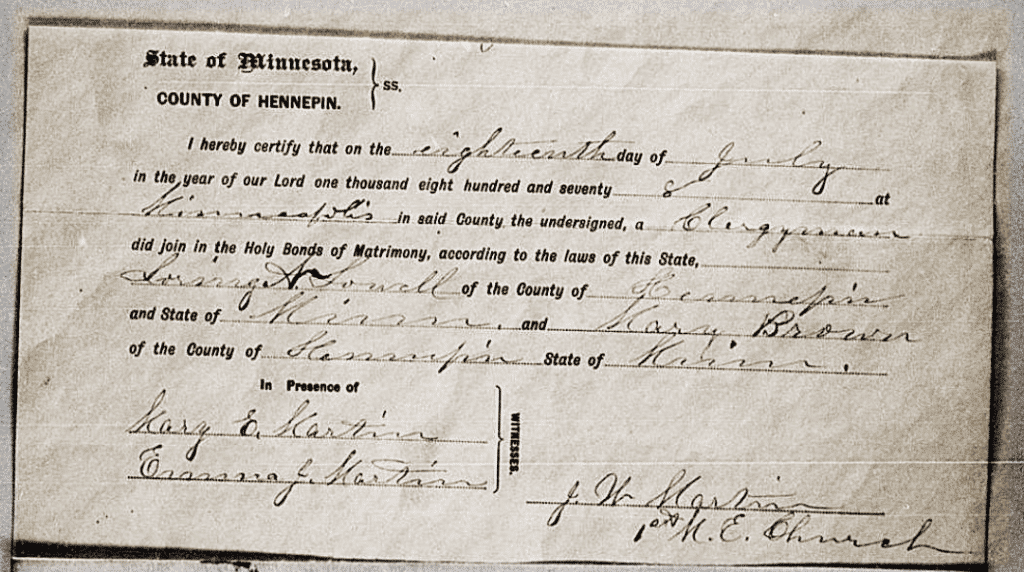 State of Minnesota,
COUNTY OF HENNEPIN. } SS.
I hereby certify that on the eighteenth day of July
in the year of our Lord one thousand eight hundred and seventy 8 at
Minneapolis in said County the undersigned, a Clergyman
did join in the Holy Bonds of Matrimony, according to the laws of this State,
Loring A. Lowell of the County of Hennepin
and State of Minn. and Mary Brown
of the County of Hennepin State of Minn.
In Presence of
Mary E. Martin
Emma J. Martin
WITNESSES.
J. W. Martin
1st M. E. Church